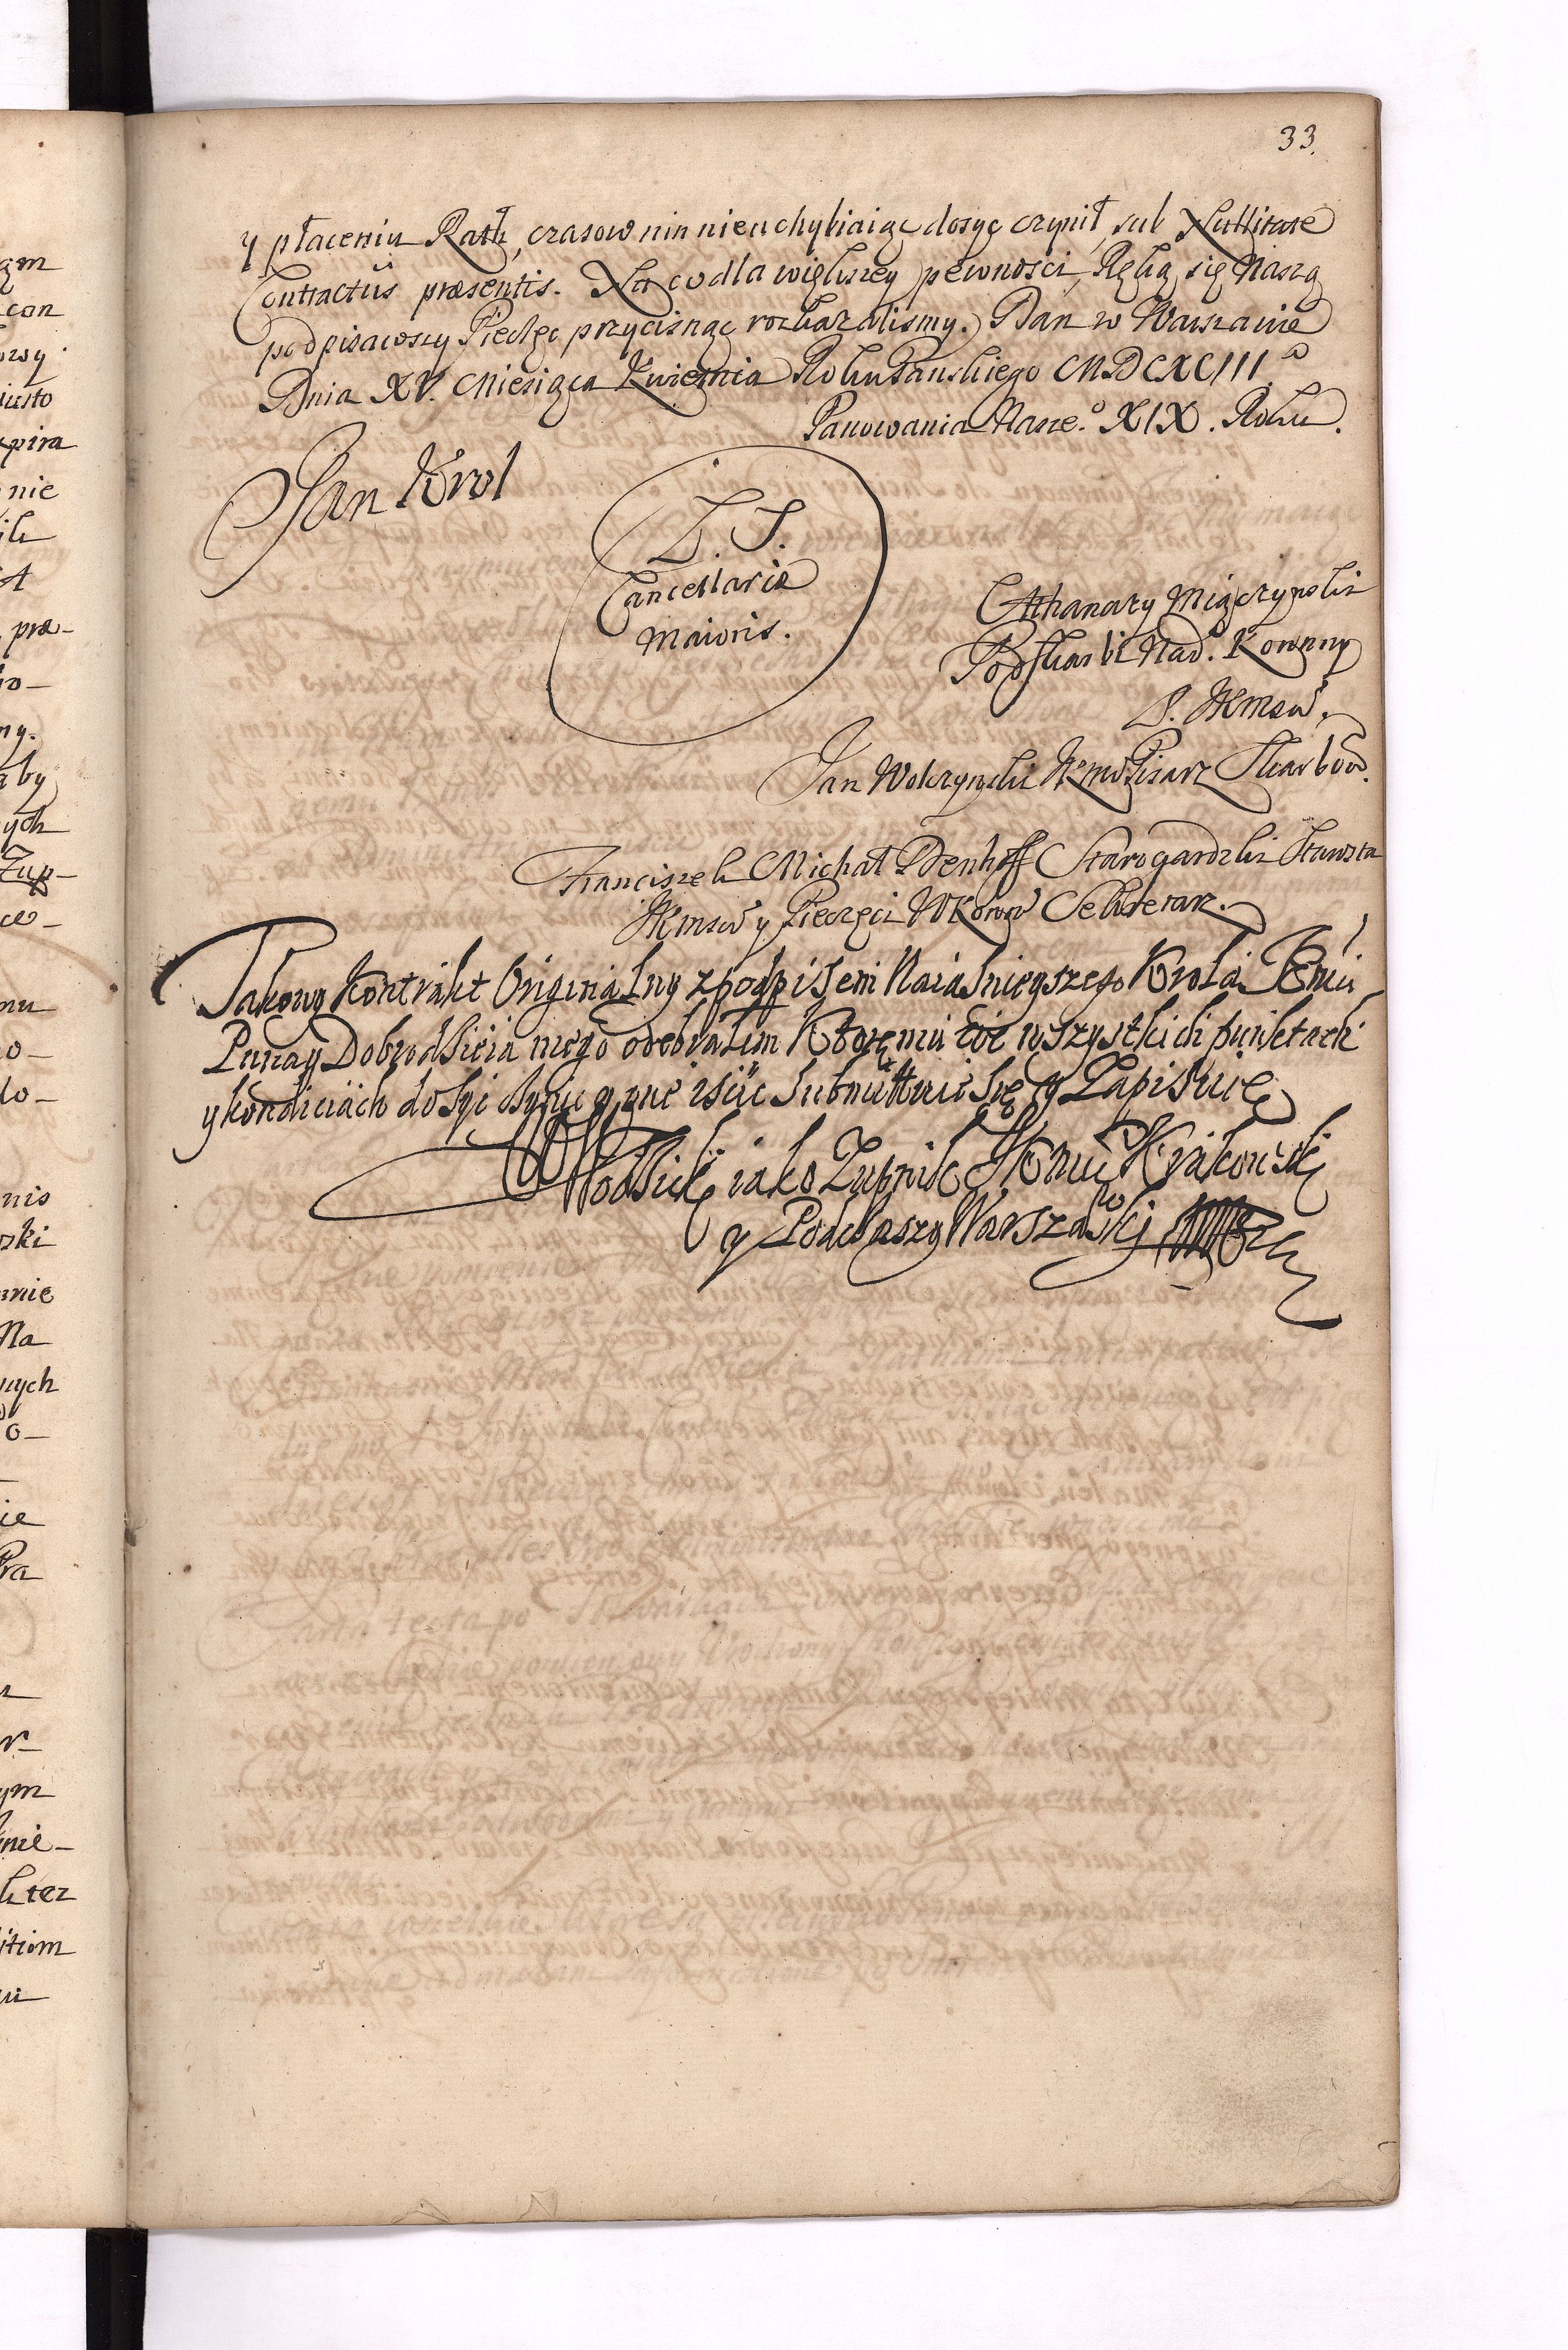 33.
y płaceniu Rath, czasow nin nieuchybiaiąc dosyc czynił, sub Nullitate
Contractus præsentis. Na co dla większey pewnosci, Ręką się Naszą
podpisawszy Pieczęc przycisnąc rozkazalismy. Dan w Warszawie
Dnia XV. Miesiąca Kwietnia Roku Pańskiego MDCXCIII.º
Panowania Nasze.º XIX. Roku.
Jan Krol
L. S.
Cancellariæ
Maioris.
Athanazy Miączynski
Podskarbi Nad. Koronny
P. JKMsci.
Jan Wolczynski JKmści Pisarz Skarbow.
Franciszek Michał Denhoff Starogardzki Starosta
JKmsci y Pieczęci WKoron Sekretarz.
Takowy Kontrakt Originalny z podpisem Naiasnieyszego Krola Jmci
Pana y Dobrodzieia mego odebrałem Ktoremu we wszystkich punktach
y kondiciach dosyc czynic y submittuie się y Zapisuię
Wodzicki iako Zupnik JKMci Krakowski
y Podczaszy Warszawski